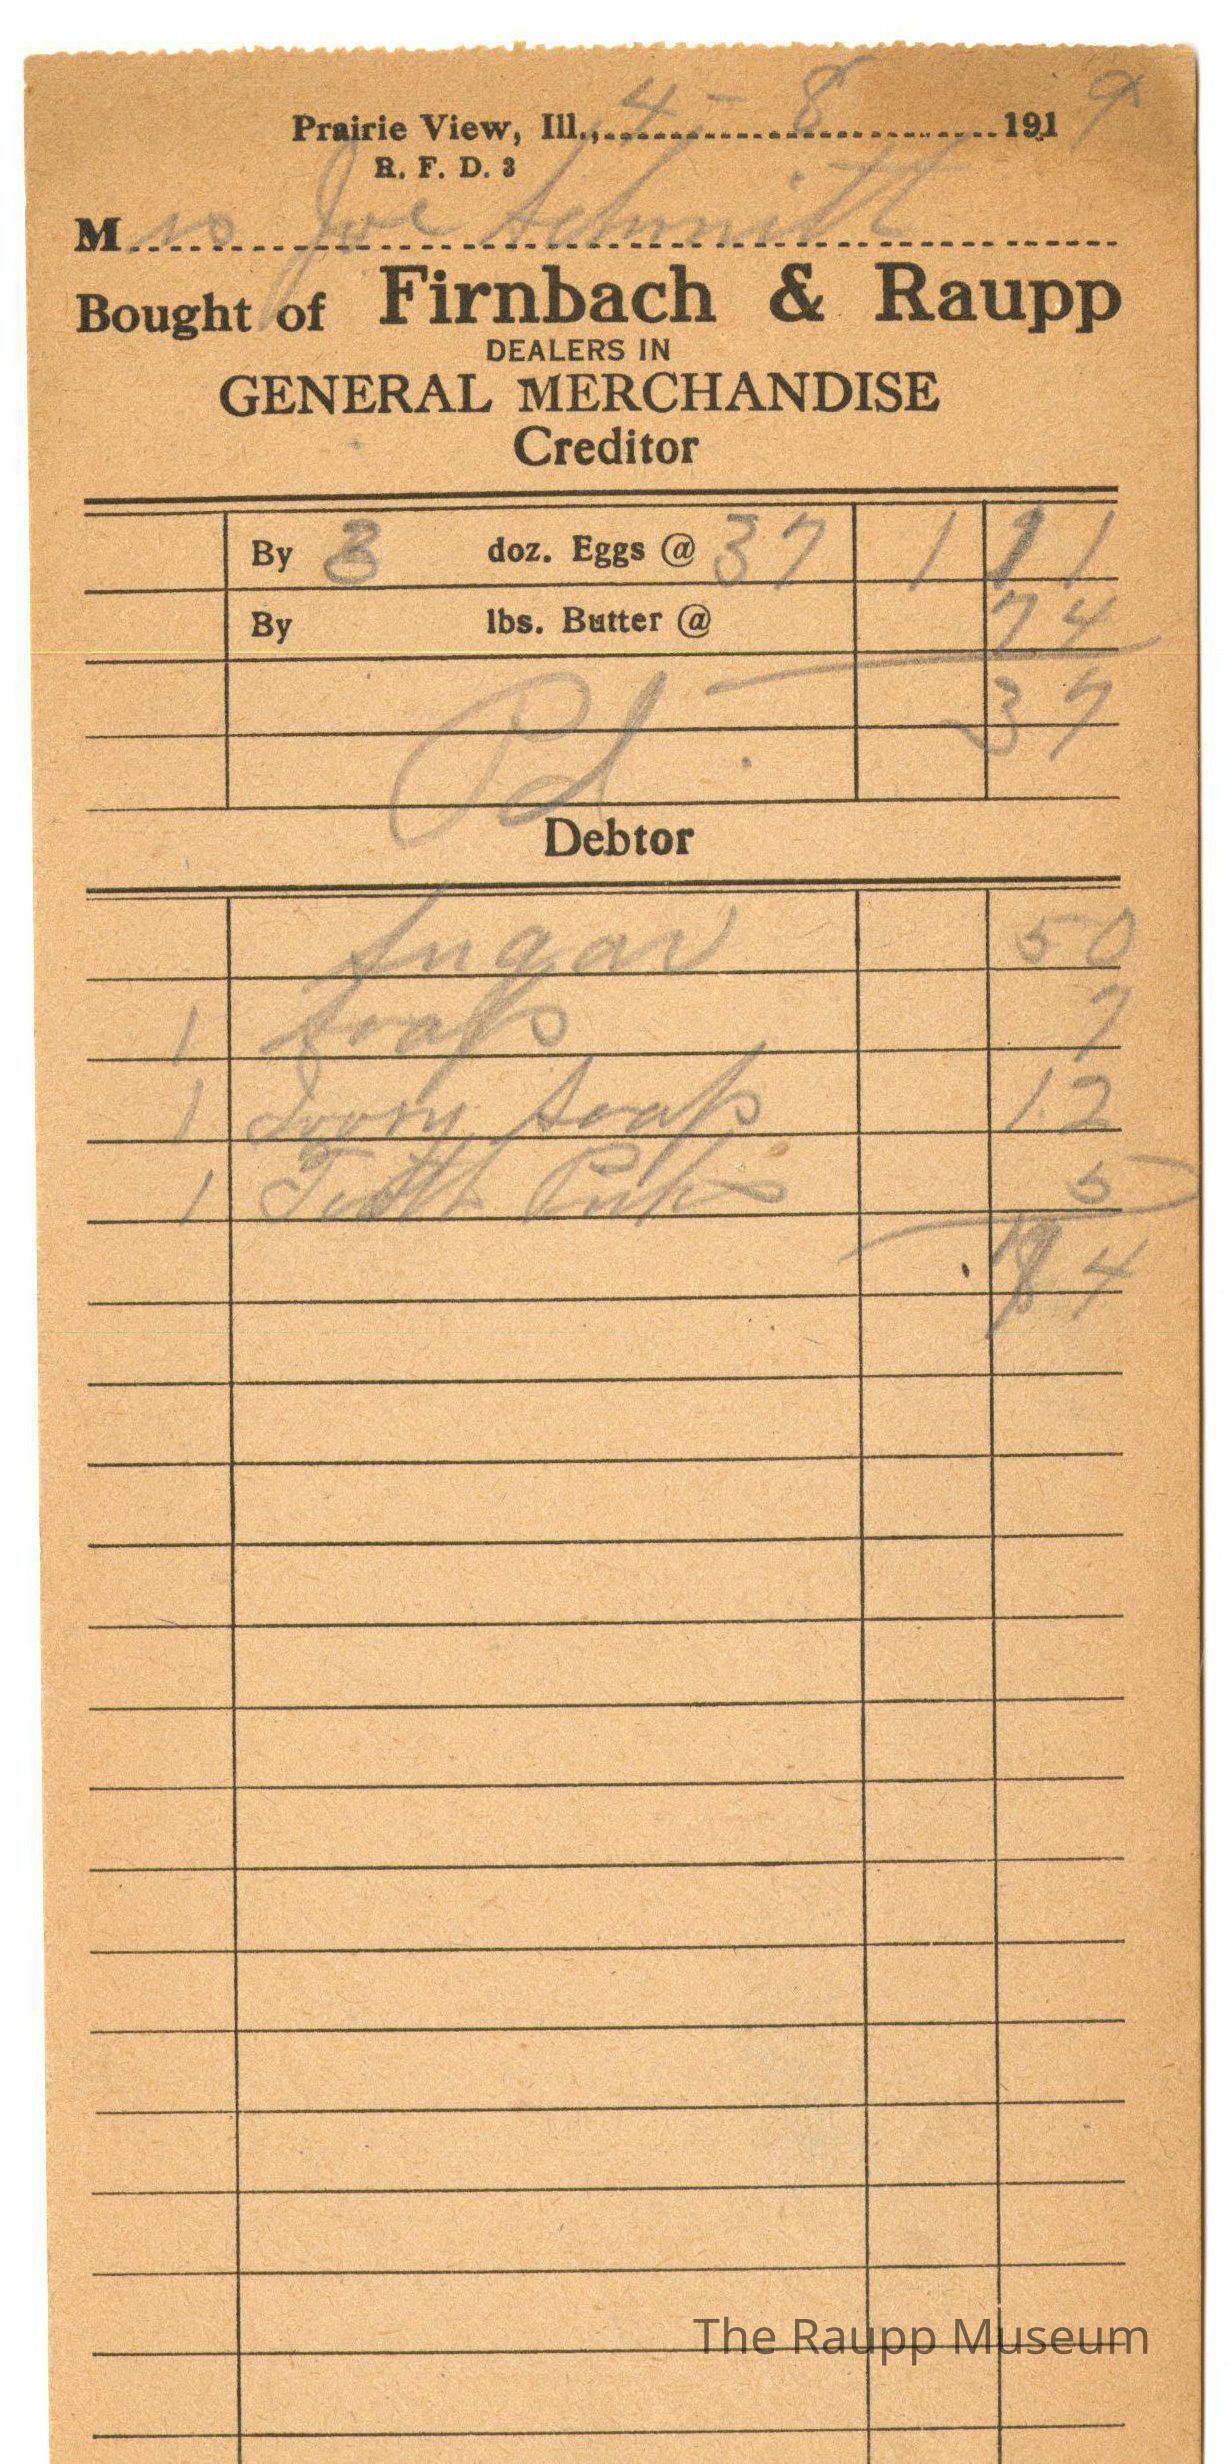 Prairie View, Ill., 4 - 8 1919
R. F. D. 3
Mrs Joe Schmitt
Bought of Firnbach & Raupp
DEALERS IN
GENERAL MERCHANDISE
Creditor
By 3 doz. Eggs @ 37 1 11
By lbs. Butter @ 74
Pd 37
Debtor
Sugar 50
1 Soap 7
1 Ivory Soap 12
1 Tooth Picks 5
74
The Raupp Museum